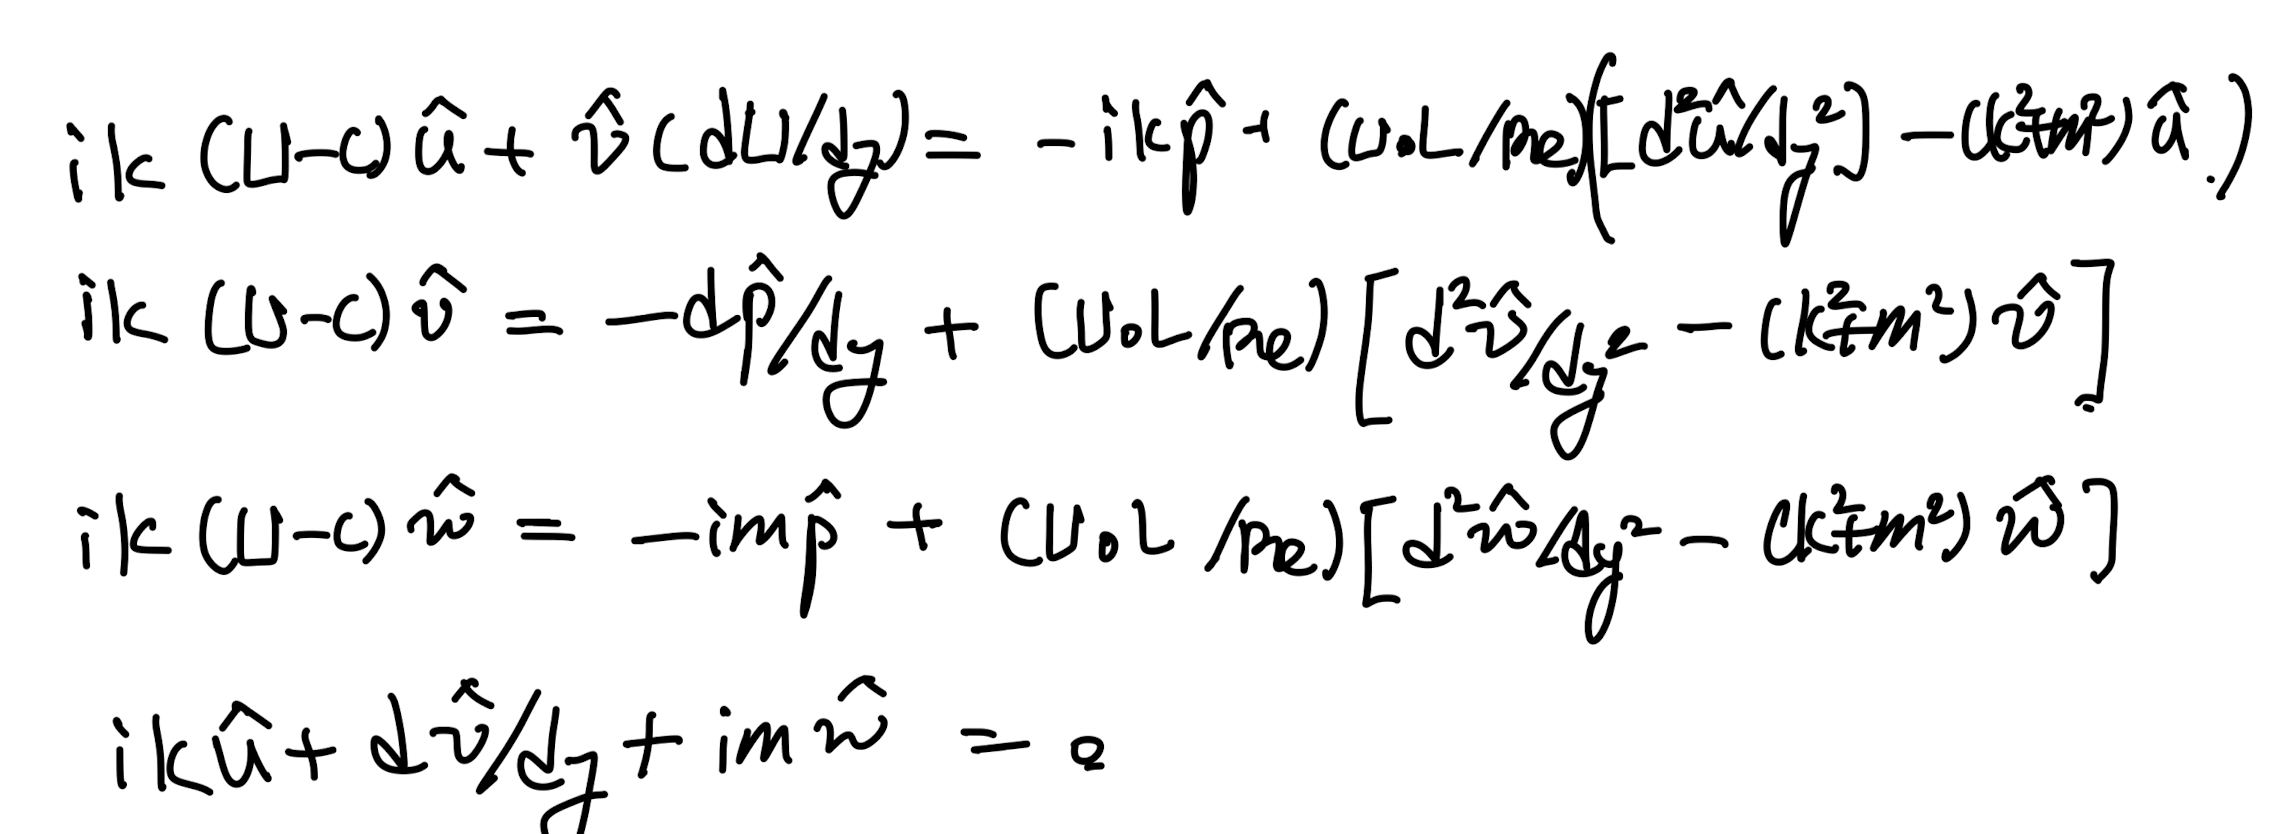 ik (U-c) û + v̂ (dU/dy) = -ikp̂ + (U₀L/Re)([d²û/dy²] - (k²+m²) û.)
ik (U-c) v̂ = -dp̂/dy + (U₀L/Re) [d²v̂/dy² - (k²+m²) v̂]
ik (U-c) ŵ = -imp̂ + (U₀L/Re) [d²ŵ/dy² - (k²+m²) ŵ]
ikû + dv̂/dy + imŵ = 0